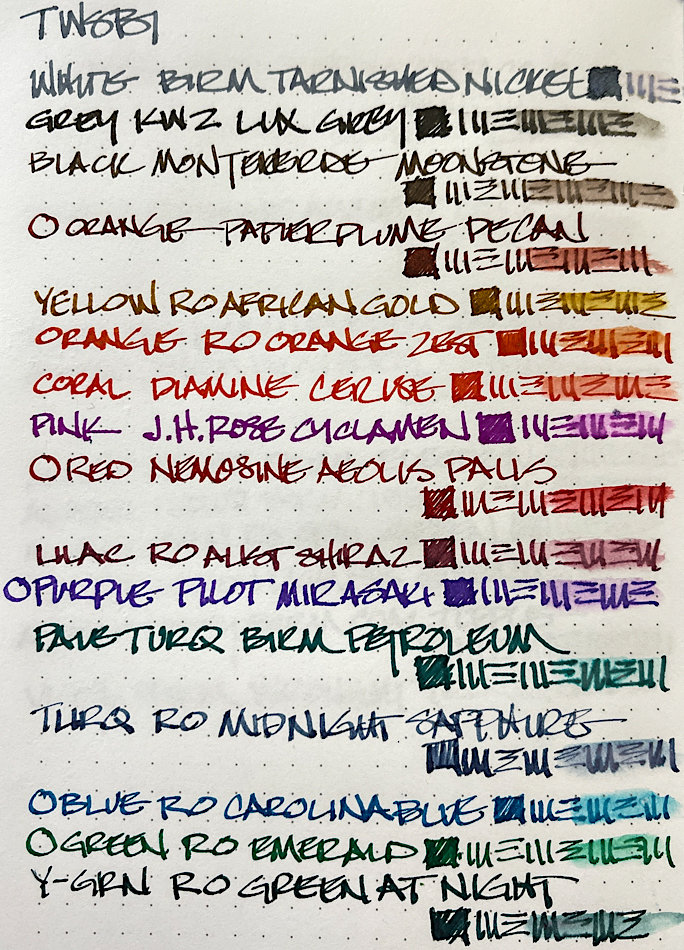 TWSBI
WHITE BIRM TARNISHED NICKEL
GREY KWZ LUX GREY
BLACK MONTEVERDE MOONSTONE
O ORANGE PAPIER PLUME PECAN
YELLOW RO AFRICAN GOLD
ORANGE RO ORANGE ZEST
CORAL DIAMINE CERISE
PINK J.H. ROSE CYCLAMEN
O RED NEMOSINE AEOLIS PALIS
LILAC RO AUST SHIRAZ
O PURPLE PILOT MIRASAKI
PALE TURQ BIRM PETROLEUM
TURQ RO MIDNIGHT SAPPHIRE
O BLUE RO CAROLINA BLUE
O GREEN RO EMERALD
Y-GRN RO GREEN AT NIGHT